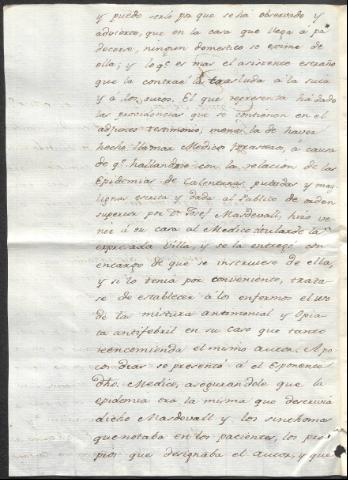 y puede seria pa que se ha observado y
advierte, que en la casa que llega á pa
decerse, ningun domestico se exime de
ella; y lo qe es mas el asistente estraño
que la contrae la traslada á la suia
y á los suios. El que representa há dado
las providencias que se contienen en el
adjunto testimonio, menos la de haver
hecho llamar Medico forastero, á causa
de qe hallandose con la relacion de las
Epidemias de Calenturas putridas y mag
lignas escrita y dada al Publico de orden
superior por Dn Josef Masdevall, hizo ve
nir á su casa al Medico titular de la
expresada Villa, y se la entregó con
encargo de que se instruiese de ella,
y si lo tenia por conveniente, trata
se de establecer á los enfermos el uso
de la mistura antimonial y Opia
ta antifebril en su caso que tanto
reencomienda el mismo autor. A po
cos dias se presentó al Exponente
dho. Medico, asegurandole que la
epidemia era la misma que descrivia
dicho Masdevall y los sinthomas
que notaba en los pacientes, los pro
pios que designaba el autor, y que